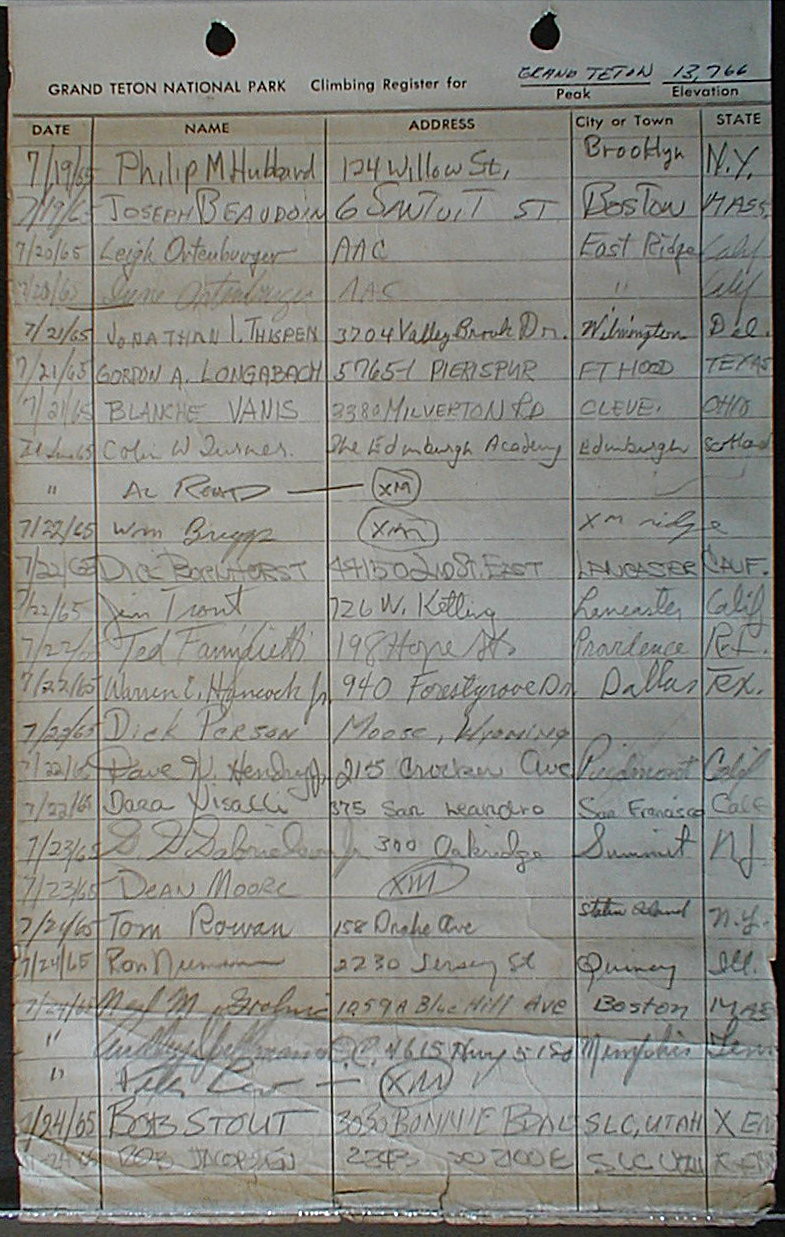 GRAND TETON NATIONAL PARK Climbing Register for GRAND TETON 13,766
Peak Elevation
DATE NAME ADDRESS City or Town STATE
7/19/65 Philip M Hubbard 124 Willow St, Brooklyn N.Y.
7/19/65 JOSEPH BEAUDOIN 6 SANTUIT ST BOSTON MASS.
7/20/65 Leigh Ortenburger AAC East Ridge Calif
7/20/65 Irene Ortenburger AAC " Calif
7/21/65 JONATHAN I. THISPEN 3704 Valley Brook Dr. Wilmington Del.
7/21/65 GORDON A. LONGABACH 5765-1 PIERISPUR FT HOOD TEXAS
7/21/65 BLANCHE VANIS 3380 MILVERTON RD CLEVE. OHIO
Colin W Turner. The Edinburgh Academy Edinburgh Scotland
" AL READ — XM
7/22/65 Wm Briggs XM XM ridge
7/22/65 DICK 44150 2nd St. EAST LANCASTER CALIF.
7/22/65 Jim Trout 726 W. Kettling Lancaster Calif
7/22/65 Ted 198 Hope St. Providence R.I.
7/22/65 Warren E. Hancock Jr. 940 Forestgrove Dr. Dallas Tex.
7/22/65 DICK PERSON MOOSE, WYOMING
7/22/65 Dave N. Hendry Jr. Crocker Ave Piedmont Calif
7/22/65 Dara Visalli 375 San Leandro San Francisco Calif
7/23/65 G. G. Gabrielson Jr 300 Oakridge Summit NJ
7/23/65 DEAN MOORE XM
7/24/65 Tom Rowan 158 Drake Ave Staten Island N.Y.
7/24/65 Ron 2230 Jersey St Quincy Ill.
7/24/65 M. 1059A Blue Hill Ave BOSTON MAS
" 4615 Hwy 51 So Memphis Tenn
" Peter — XM
7/24/65 BOB STOUT 3030 BONNIE SLC, UTAH X
BOB SLC UTAH